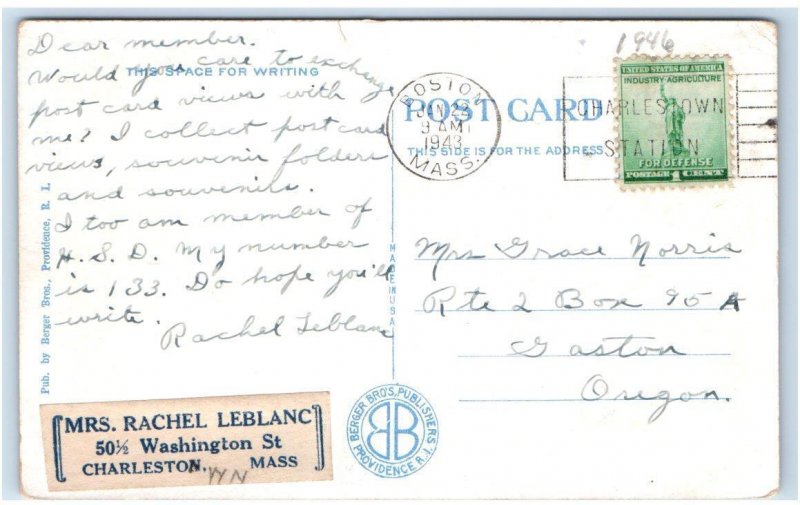 Dear member.
Would you care to exchange
THIS SPACE FOR WRITING
post card views with
me? I collect post card
views, souvenir folders
and souvenirs.
I too am member of
H.S.D. My number
is 133. Do hope you'll
write.
Rachel Leblanc
Pub. by Berger Bros., Providence, R. I.
MRS. RACHEL LEBLANC
50½ Washington St
CHARLESTON, MASS
WN
MADE IN USA
BERGER BRO'S, PUBLISHERS
BB
PROVIDENCE, R. I.
1946
BOSTON
9 AM
1943
MASS.
POST CARD
THIS SIDE IS FOR THE ADDRESS
CHARLESTOWN
STATION
UNITED STATES OF AMERICA
INDUSTRY-AGRICULTURE
FOR DEFENSE
POSTAGE 1 CENT
Mrs Grace Norris
Rte 2 Box 95 A
Gaston
Oregon.